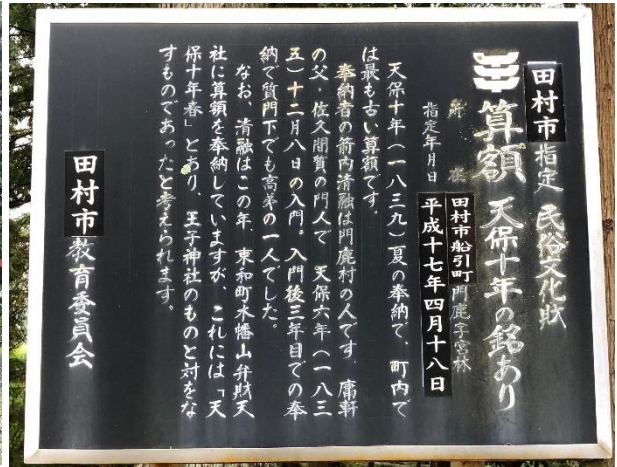 田村市指定 民俗文化財
算額 天保十年の銘あり
所在 田村市船引町門鹿字宮林
指定年月日 平成十七年四月十八日
天保十年（一八三九）夏の奉納で、町内で
は最も古い算額です。
奉納者の箭内清融は門鹿村の人です。庸軒
の父・佐久間質の門人で 天保六年（一八三
五）十二月八日の入門。入門後三年目での奉
納で質門下でも高弟の一人でした。
なお、清融はこの年、東和町木幡山弁財天
社に算額を奉納していますが、これには「天
保十年春」とあり、王子神社のものと対をな
すものであったと考えられます。
田村市教育委員会